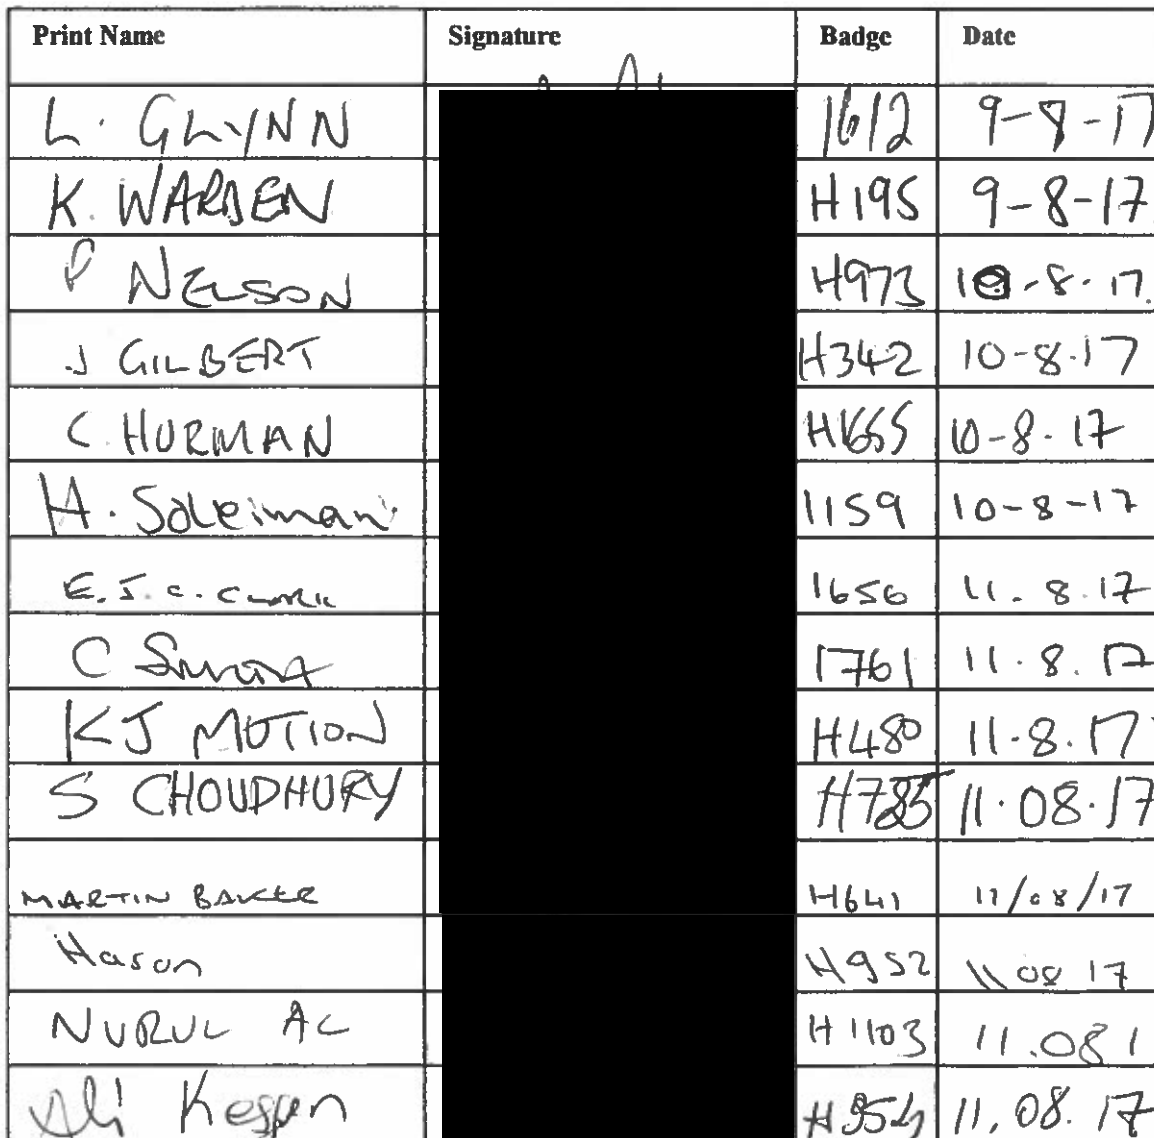 Print Name Signature Badge Date
L. GLYNN 1612 9-8-17
K. WARDEN H195 9-8-17
P NELSON H973 10-8-17.
J GILBERT H342 10-8.17
C HURMAN 10-8.17
H. Soleimani 1159 10-8-17
E.J.C. CLARK 1656 11.8.17
C 1761 11.8.17
KJ MOTION H480 11.8.17
S CHOUDHURY H785 11.08.17
MARTIN BAKER H641 11/08/17
Hason H952 11 08 17
NURUL AL H1103 11.081
Ali H954 11.08.17